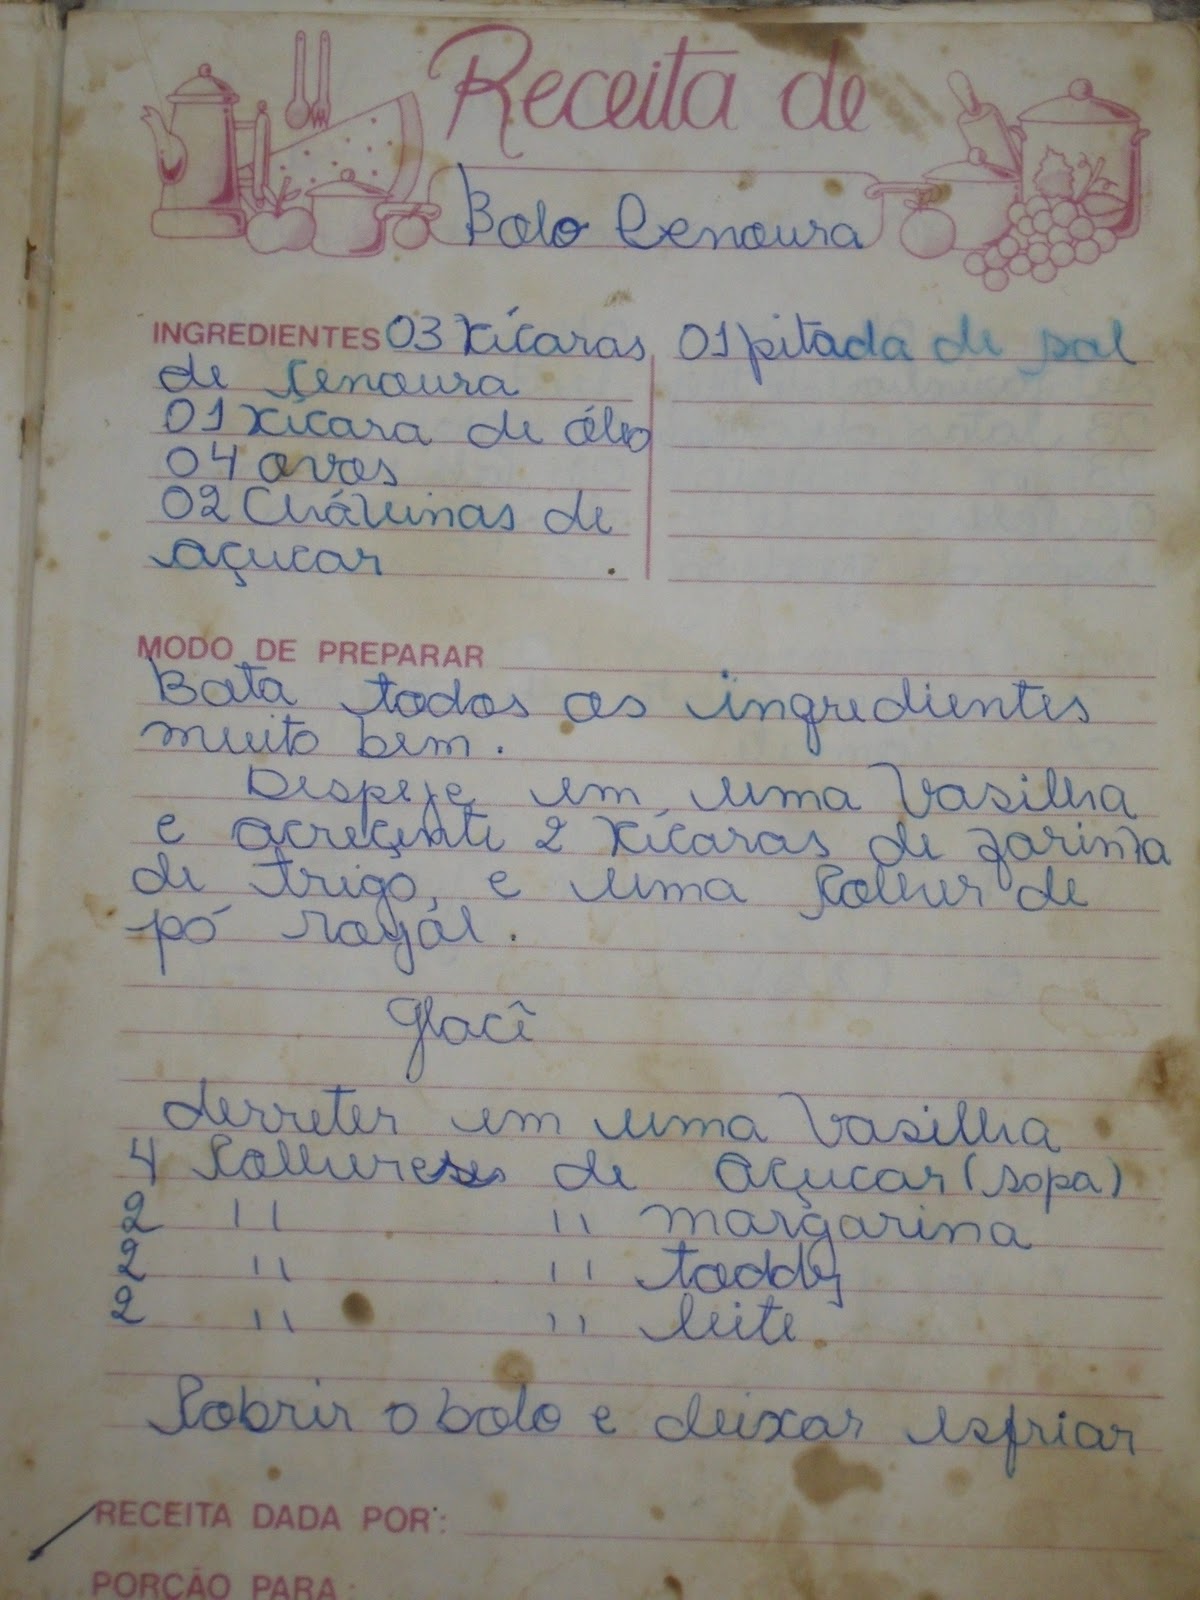 Receita de
Bolo Cenoura
INGREDIENTES 03 Xícaras
de Çenoura
01 Xícara de óleo
04 ovos
02 Chávinas de
açucar
01 pitada de sal
MODO DE PREPARAR
Bata todos os ingredientes
muito bem.
Despeje em uma Vasilha
e acreçente 2 Xícaras de farinha
de trigo, e uma Colher de
pó royál.
Glacê
derreter em uma Vasilha
4 Colheres de açucar (sopa)
2 " " margarina
2 " " toddy
2 " " leite.
Cobrir o bolo e deixar esfriar
RECEITA DADA POR:
PORÇÃO PARA: